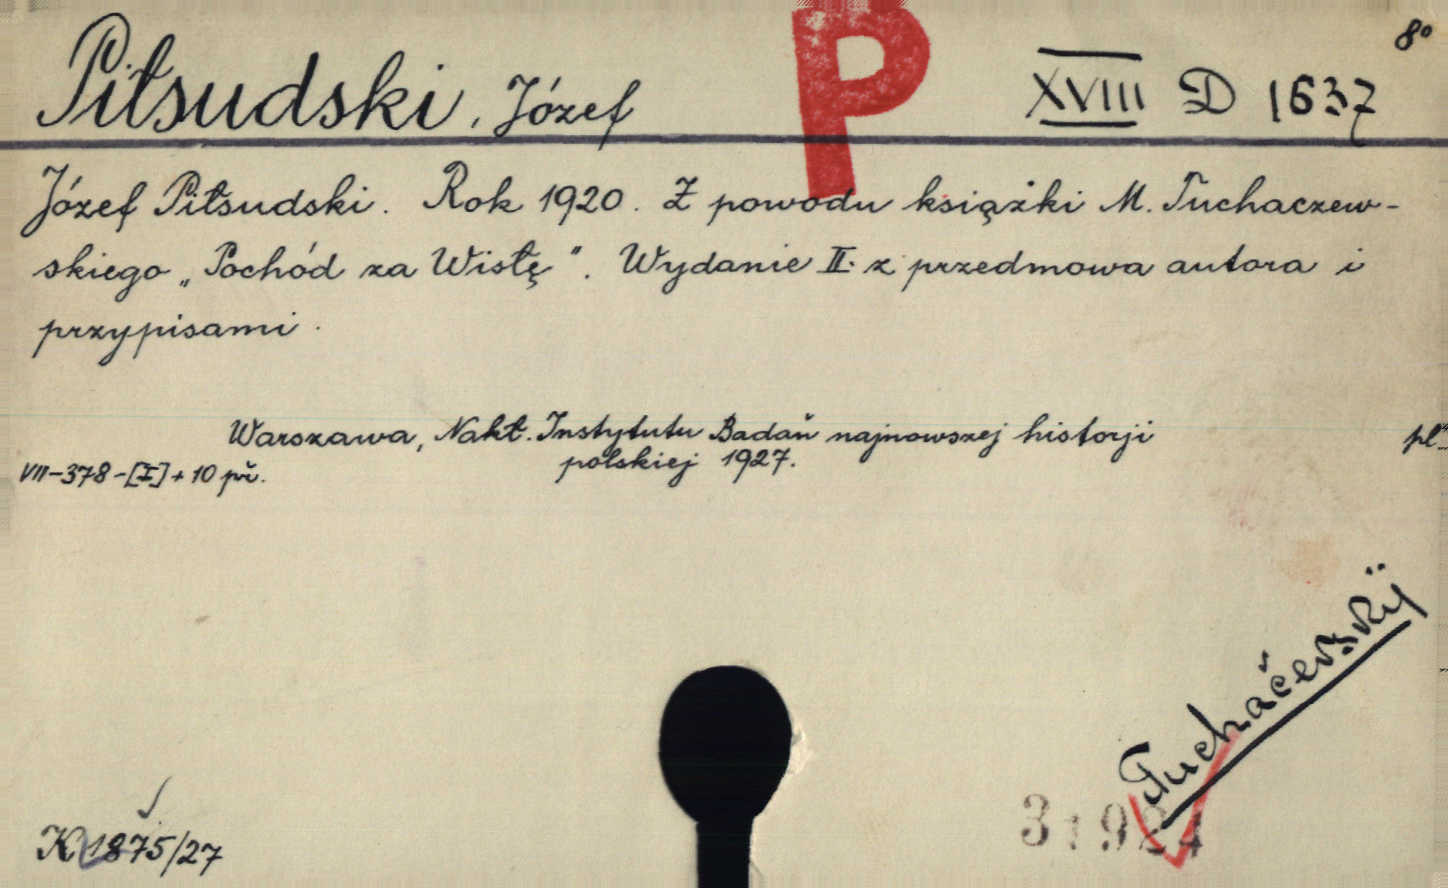 8°
P
Piłsudski, Józef
XVIII D 1637
Józef Piłsudski. Rok 1920. Z powodu książki M. Tuchaczew-
skiego „Pochód za Wisłę". Wydanie II. z przedmowa autora i
przypisami.
Warszawa, Nakł. Instytutu Badaň najnowszej historji
polskiej 1927.
pl
VIII-378-[I] + 10 př.
Tuchačevskÿ
K 1875/27
31924